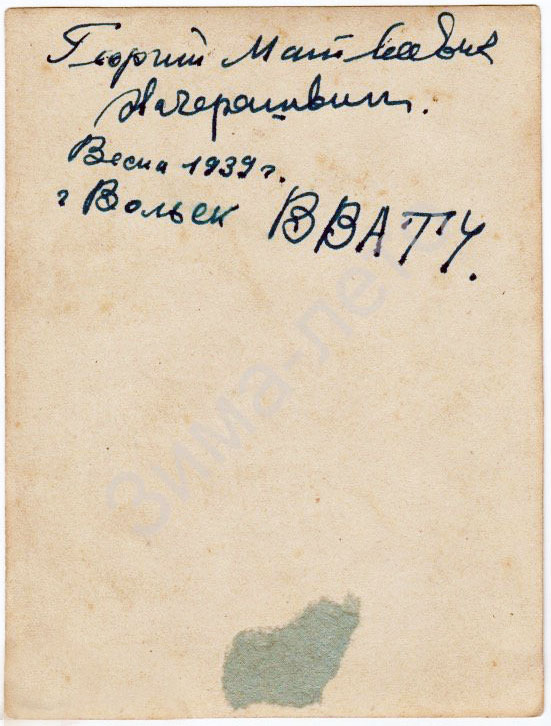 Георгий Матвеевич
Мачерашвили.
Весна 1939 г.
г Вольск ВВАТУ.
Зима-ле